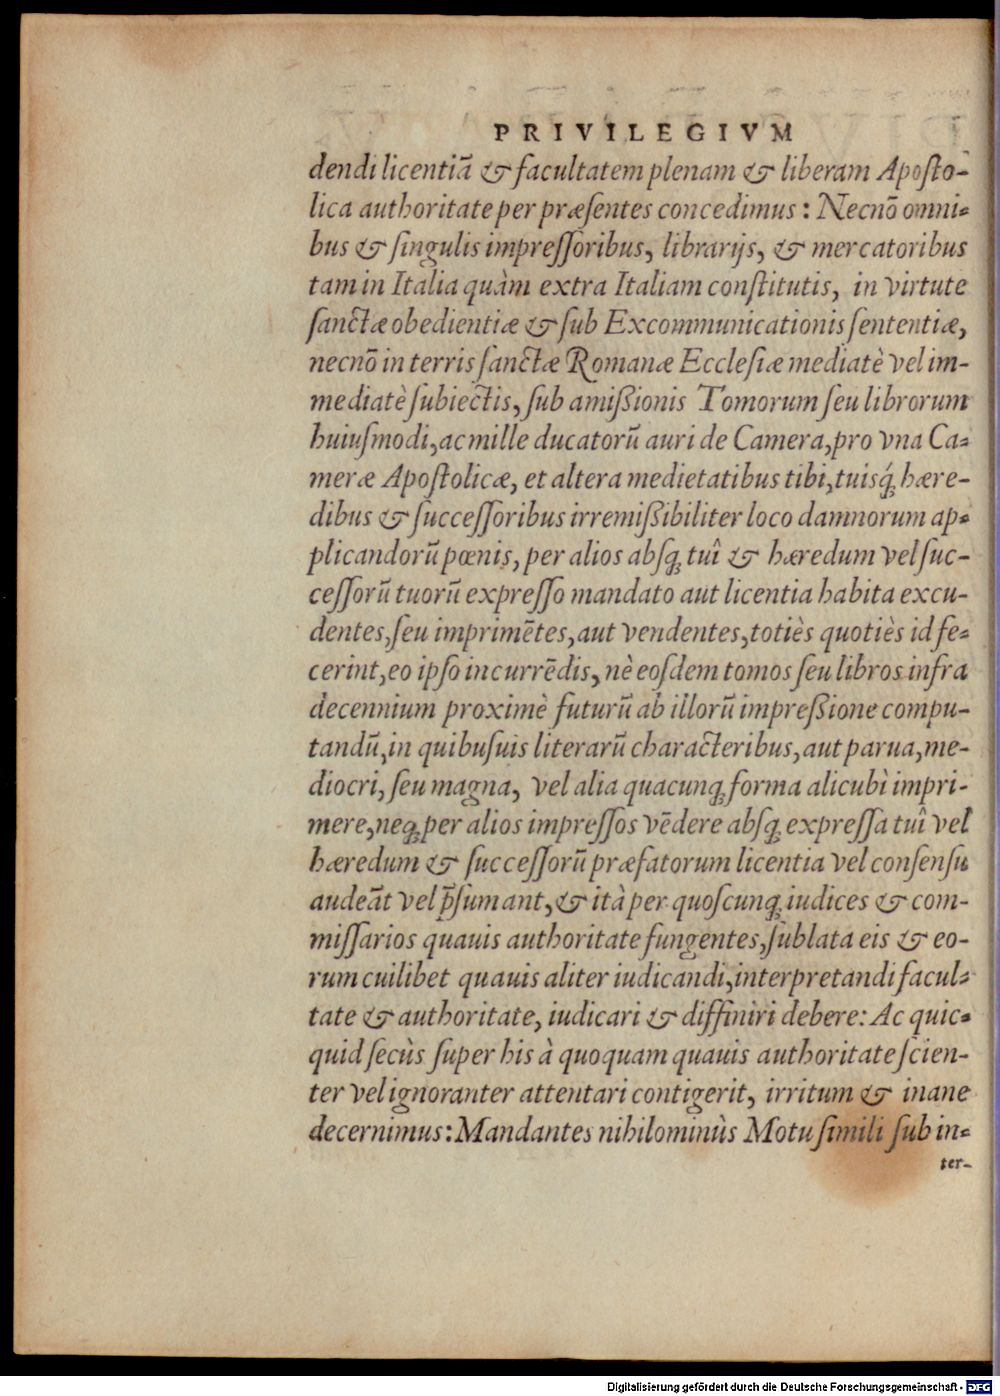 PRIVILEGIVM
dendi licentiā & facultatem plenam & liberam Aposto-
lica authoritate per præsentes concedimus: Necnō omni-
bus & singulis impressoribus, librarijs, & mercatoribus
tam in Italia quàm extra Italiam constitutis, in virtute
sanctæ obedientiæ & sub Excommunicationis sententiæ,
necnō in terris sanctæ Romanæ Ecclesiæ mediatè vel im-
mediatè subiectis, sub amißionis Tomorum seu librorum
huiusmodi, ac mille ducatorū auri de Camera, pro vna Ca-
meræ Apostolicæ, et altera medietatibus tibi, tuisq́; hære-
dibus & successoribus irremißibiliter loco damnorum ap-
plicandorū pœnis, per alios absq; tuî & hæredum vel suc-
cessorū tuorū expresso mandato aut licentia habita excu-
dentes, seu imprimētes, aut vendentes, totiès quotiès id fe-
cerint, eo ipso incurrēdis, nè eosdem tomos seu libros infra
decennium proximè futurū ab illorū impreßione compu-
tandū, in quibusuis literarū characteribus, aut parua, me-
diocri, seu magna, vel alia quacunq; forma alicubì impri-
mere, neq; per alios impressos vēdere absq; expressa tuî vel
hæredum & successorū præfatorum licentia vel consensu
audeāt vel p̄sumant, & ità per quoscunq; iudices & com-
missarios quauis authoritate fungentes, sublata eis & eo-
rum cuilibet quauis aliter iudicandi, interpretandi facul-
tate & authoritate, iudicari & diffiniri debere: Ac quic-
quid secùs super his à quoquam quauis authoritate scien-
ter vel ignoranter attentari contigerit, irritum & inane
decernimus: Mandantes nihilominùs Motu simili sub in-
ter-
Digitalisierung gefördert durch die Deutsche Forschungsgemeinschaft - DFG